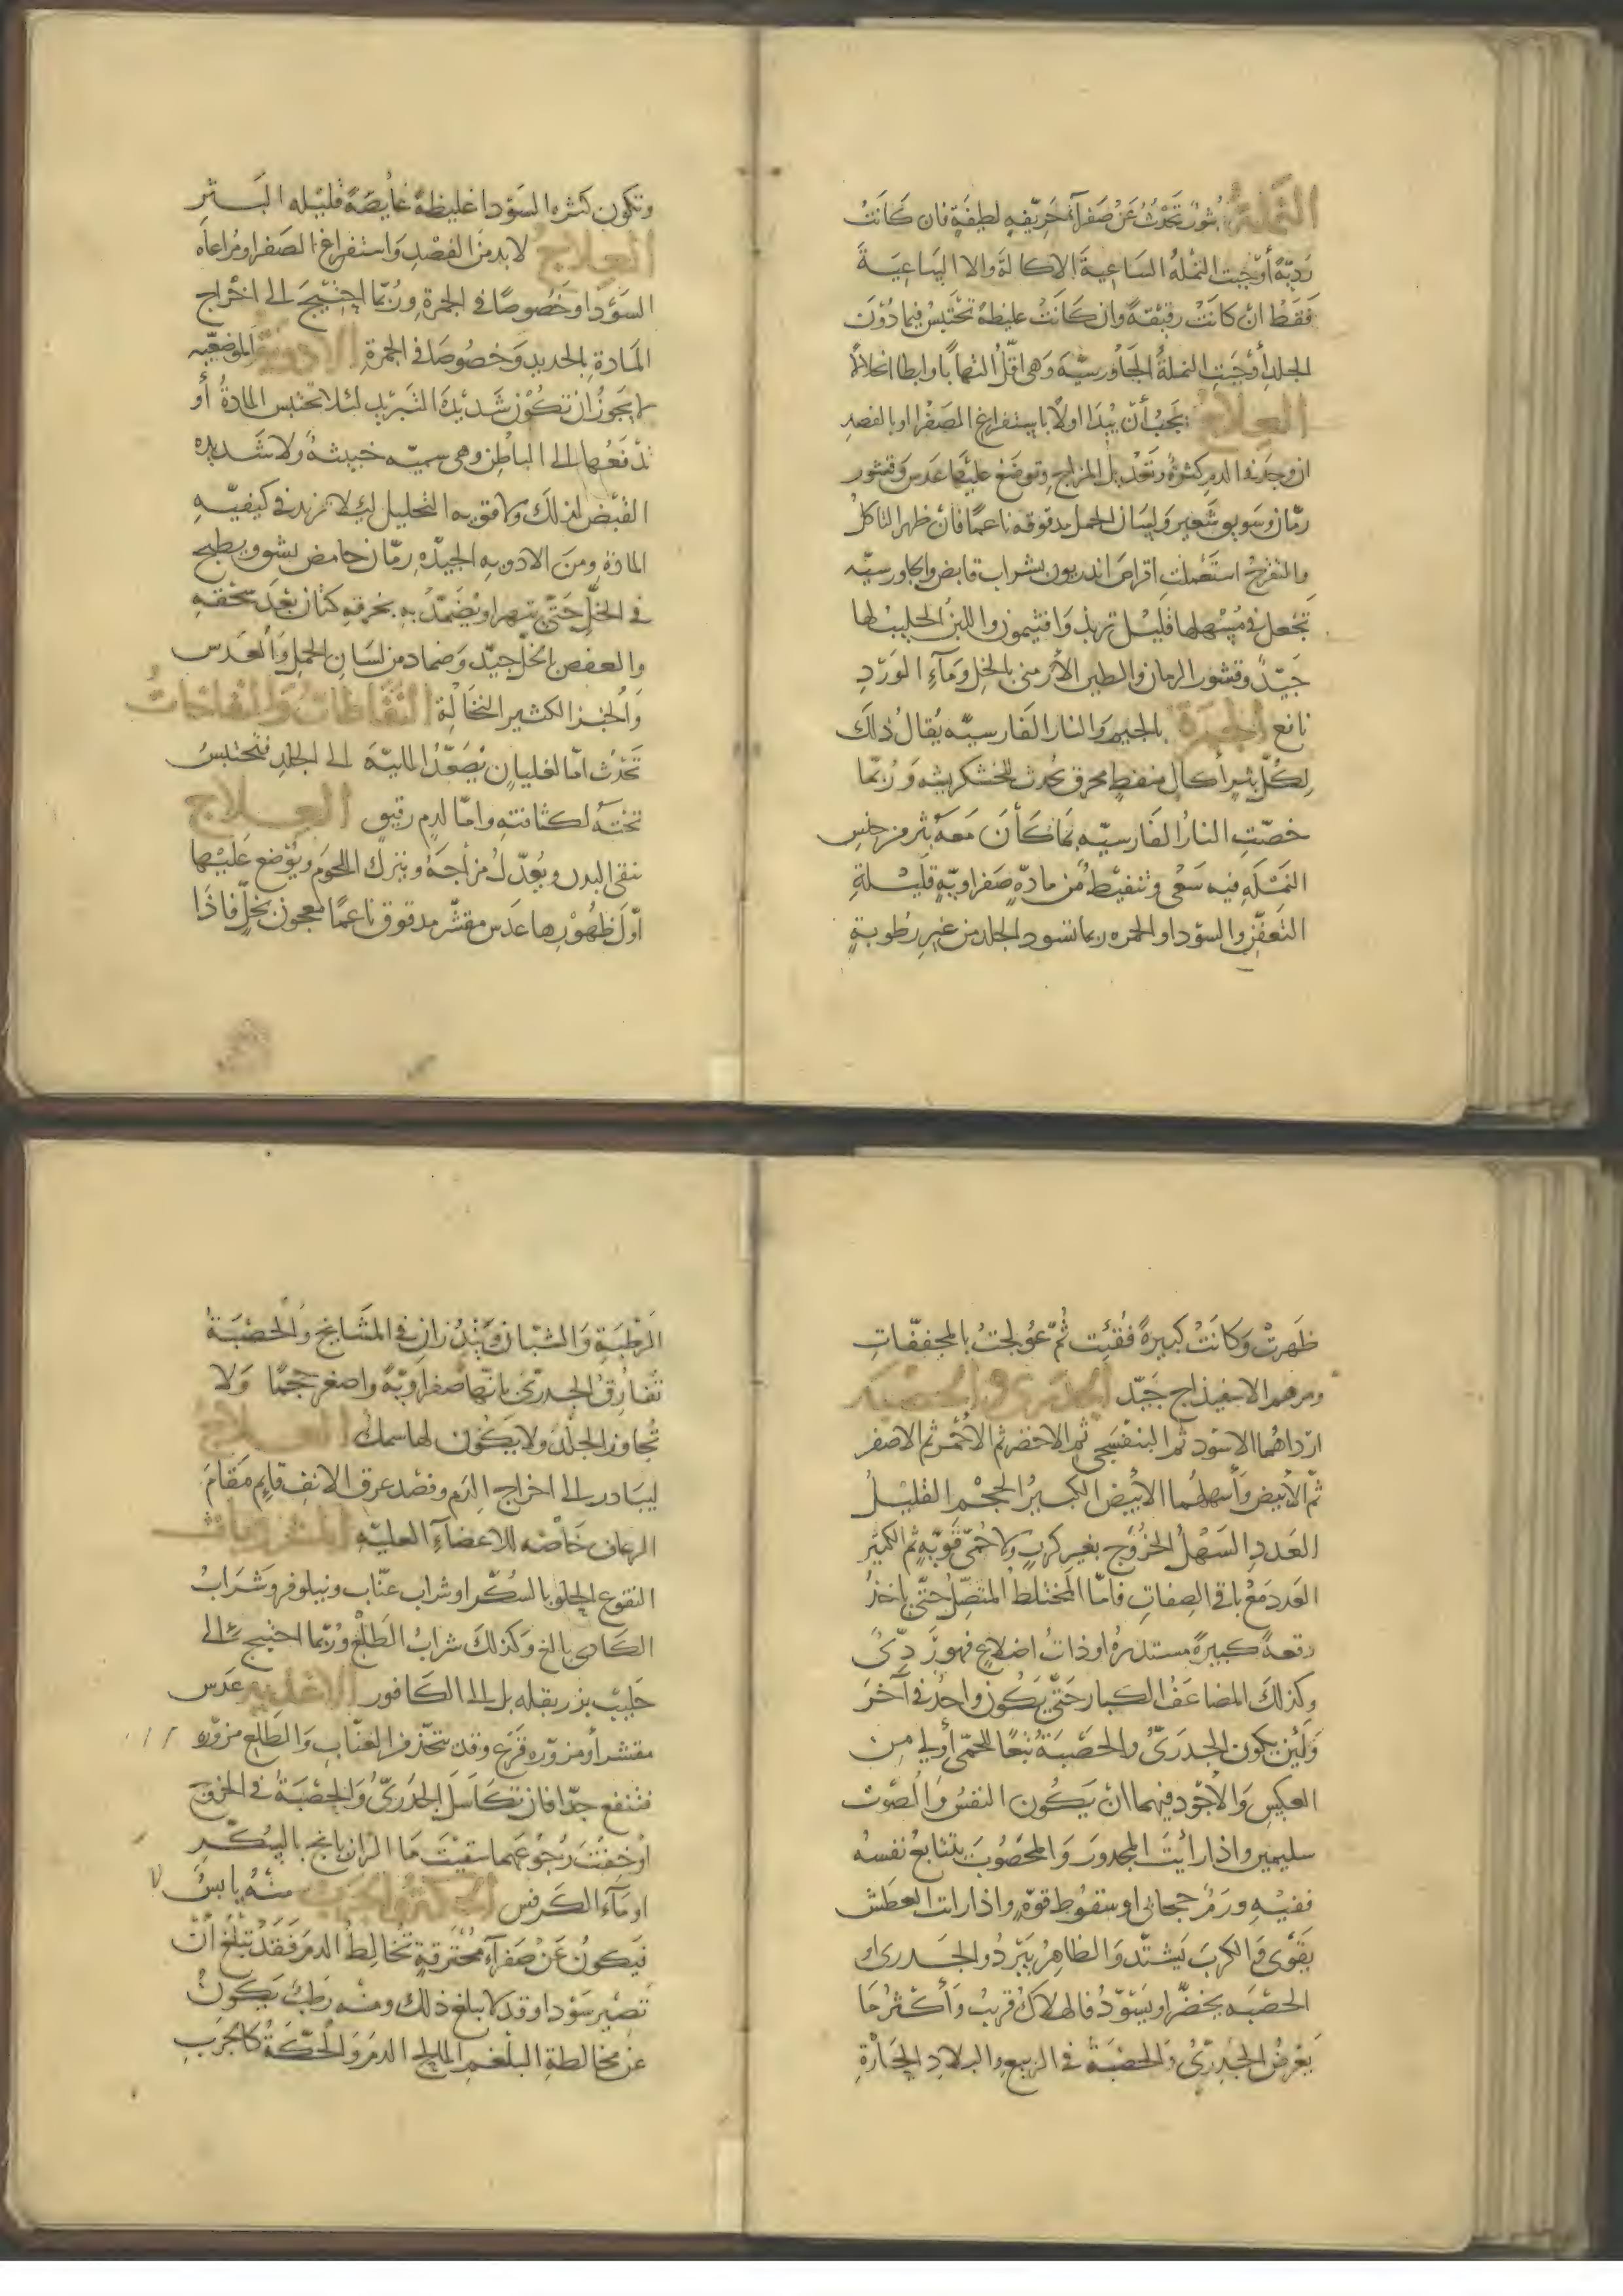 النملة بثور تحدث عن صفرآء حريفه لطيفة فان كانت
رديّة أوجبت النملة الساعية الاكالة والا الساعية
فقط ان كانت رقيقة وان كانت غليظة تحتبس فيما دون
الجلد أوجبت النملة الجاورسيّة وهي اقلّ التهاباً وابطا انحلالاً
العلاج يجب أن يُبدا اولاً باستفراغ الصفرا او بالفصد
ان وجد في الدم كثرة وتعديل المزاج وتوضع عليها عدس وقشور
رمّان وسويق شعير ولسان الحمل مدقوقه ناعمًا فان ظهر التاكل
والتقرح استعملت اقراص اندريون بشراب قابض والجاورسيّه
تجعل في مُسهلها قليل تربذ وافتيمون واللبن الحليب لها
جيّدٌ وقشور الرمان والطين الأرمني بالخل ومآء الورد
نافع الجمرة بالجيم والنار الفارسيّه يُقال ذلك
لكلّ بثرٍ أكال منفط محرق محدث للخشكريشه ورُبّما
خصّت النار الفارسيّه بما كأن معه بثر من جنس
النملة فيه سعى وتنفيّط من مادّة صفراويّة قليلة
التعفّن والسودا والجمره ربما تسود الجلد من غير رطوبة
وتكون كثره السودا غليظة غايصة قليله البـثر
العلاج لا بد من الفصد واستفراغ الصفرا ومُراعاه
السودا وخصوصًا في الجمرة ورُبّما احتيج الى اخراج
المادة بالحديد وخصُوصَا في الجمرة الادوية الموضعيّه
لا يجوز ان تكون شديدة التبريد لئلا تحتبس المادةُ أو
تدفعها الى الباطن وهي سميّه خبيثة ولا شديده
القبض لذلك ولا قويه التحليل ليلا تزيد في كيفيّه
المادة ومن الادويه الجيّده رمّان حامض يشق ويطبخ
في الخل حتّى يتهرا ويُضمّدُ به بخرقه كتان بعد سحقه
والعفص بالخل جيّد وضماد من لسان الحمل والعدس
والخبز الكثير النخالة النفاطات والنفاخات
تحدث امّا لغليان يُصعّدُ المائيّة الى الجلد فتحتبسُ
تحته لكثافته وامّا لدم رقيق العلاج
ينقى البدن ويُعدّل مزاجهُ ويترك اللحوم ويُوضع عليها
أوّل ظهُورها عدس مقشّر مدقوق ناعمًا معجون بخلّ فاذا
ظهرت وكانت كبيرة فُقِئت ثمّ عُولجت بالمجففّات
ومرهم الاسفيذاج جيّد الجدري والحصبة
ارداهُما الاسود ثم البنفسجي ثم الاخضر ثم الأحمر ثم الاصفر
ثمّ الأبيض وأسهلهُما الأبيض الكبير الحجم القليلُ
العددِ السهلُ الخرُوج بغير كربٍ ولا حُمّى قويّةٍ ثم الكثير
العدد مع باقي الصفات فامّا المختلط المتصلّ حتّى ياخذ
رقعة كبيرة مستديرة او ذات اضلاعٍ فهو ردِيّ
وكذلك المضاعف الكبار حتّى يكون واحد في آخر
ولئن يكون الجدريُّ والحصبة تبعًا للحمّى أولى من
العكس والأجود فيهما ان يكون النفسُ والصّوت
سليمين واذا رأيت المجدور والمحصُوب يتتابعُ نفسهُ
ففيه ورمٌ حجابي او سقوط قوّةٍ واذا رأت العطش
يقوى والكرب يشتد والظاهر يبرُد والجدري او
الحصبه يخضرّ او يسودّ فالهلاك قريب وأكثرُ ما
يعرض الجدريّ والحصبة في الربيع والبلاد الحارّة
الرطبة والشبان ويندُران في المشايخ والحصبة
تفارق الجدريّ بانها صفراويّة واصغر حجمًا ولا
تُجاوز الجلد ولا يكُون لها سمك العلاج
ليبادر الى اخراج الدم وفصد عرق الانف قايم مقام
الرعاف خاصّه للاعضآء العليّه المشروبات
النقوع الحلو بالسُكّر او شراب عنّاب ونيلوفر وشرابُ
الكادي بالغ وكذلك شرابُ الطلع ورُبّما احتيج الى
حليب بزر بقله بل الى الكافور الاغذيه عدس
مقشر أو مزوّره قرع وقد تتخذ من العنّاب والطلع مزوّره
فتنفع جدّا فان تكاسل الجدَريّ والحصْبَةُ في الخروج
او خفت رجُوعهما سقيت مآ الرازيانج بالسُكّر
او مآء الكرفس الحكة والجرب منهُ يابسٌ
فيكونُ عن صفرآء محترقةٍ تخالطُ الدم فقد تبلغ ان
تصير سودا وقد لا يبلغ ذلك ومنه رطبٌ يكون
عن مخالطة البلغم المالح الدم والحكّة كالجرب